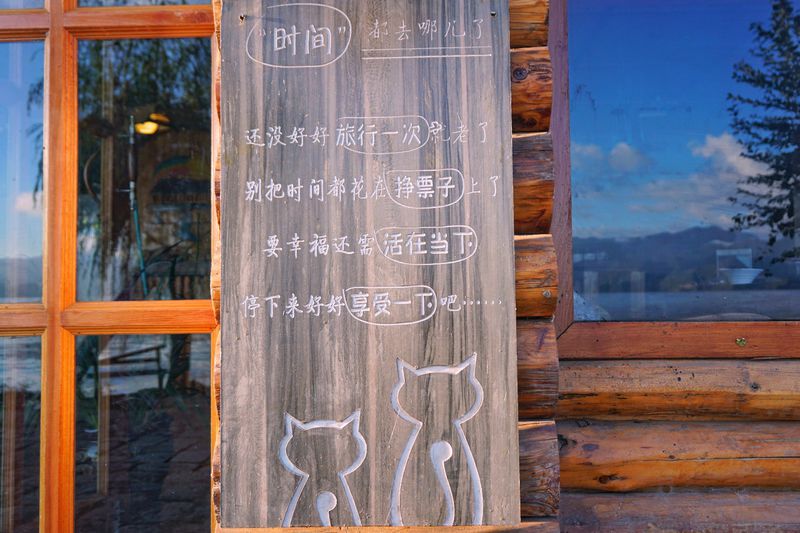 “时间”都去哪儿了
还没好好旅行一次就老了
别把时间都花在挣票子上了
要幸福还需活在当下.
停下来好好享受一下吧……